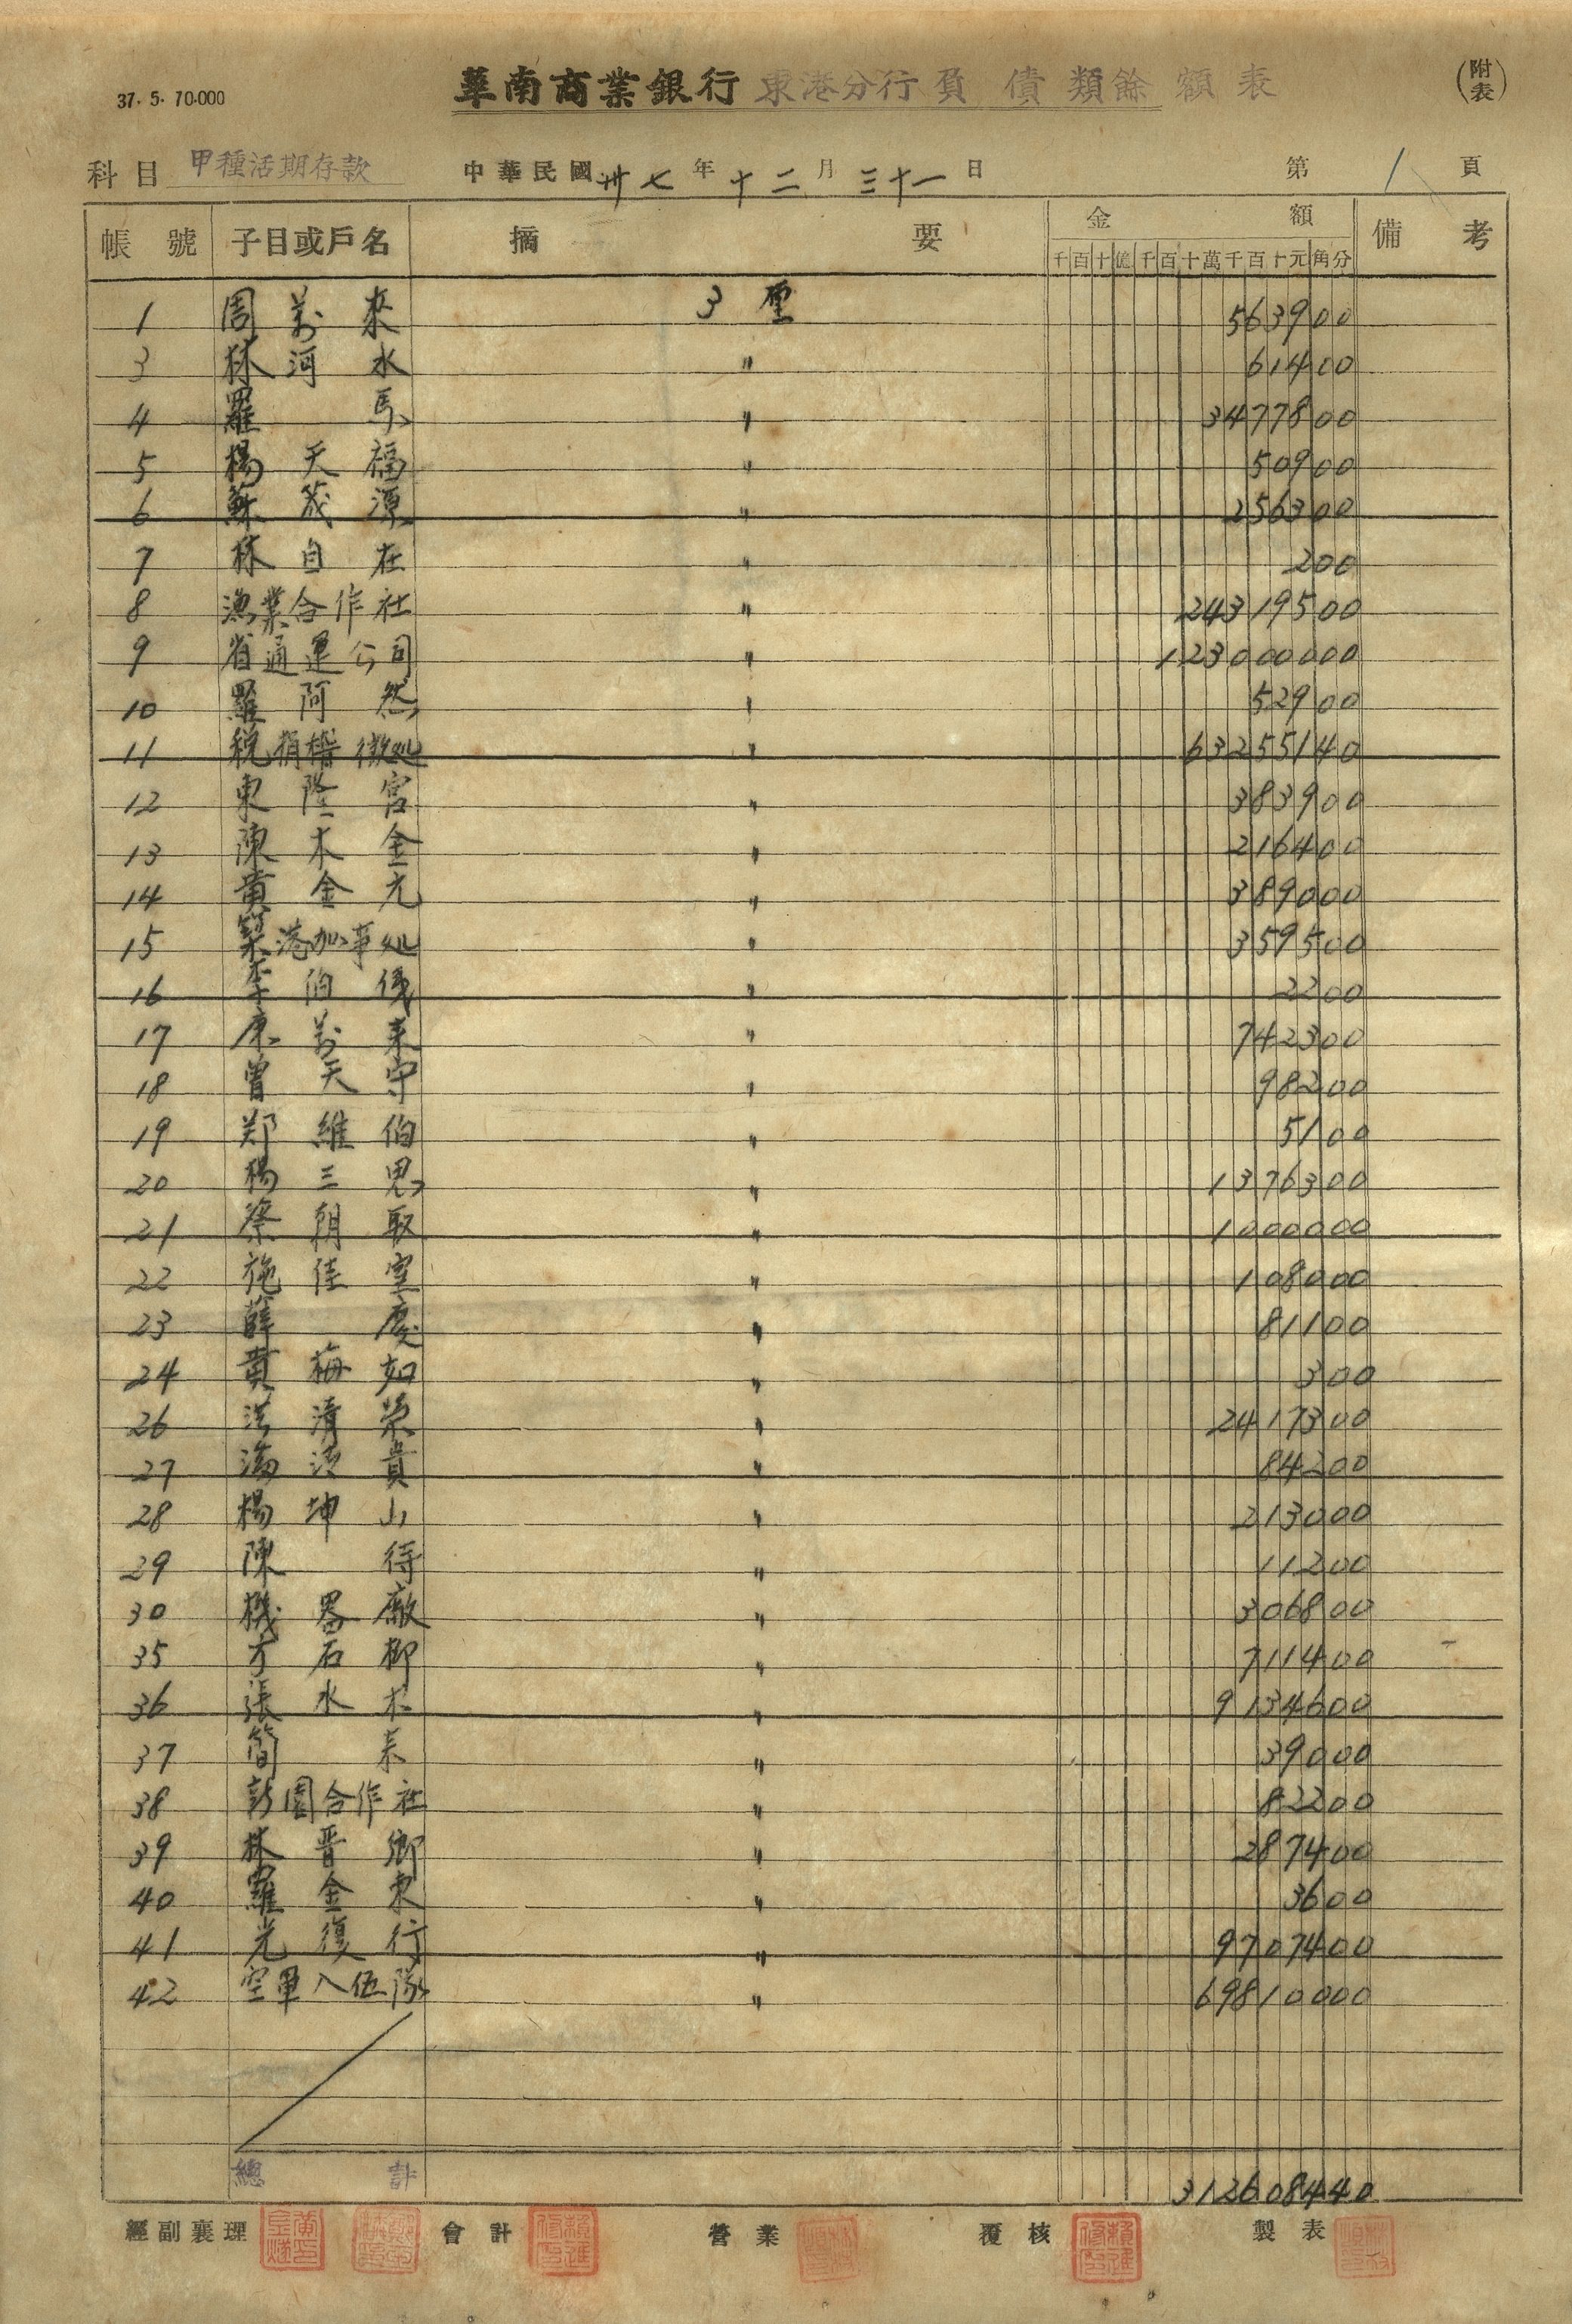 37. 5. 70.000
華南商業銀行 東港分行 負債類餘額表
(附表)
科目 甲種活期存款 中華民國 卅七 年 十二 月 三十一 日 第 1 頁
帳號 子目或戶名 摘要 金額 備考
千百十億千百十萬千百十元角分
1 周萬來 3厘 563900
3 林河水 〃 61400
4 羅馬 〃 3477800
5 楊天福 〃 50900
6 蘇茂源 〃 256300
7 林自在 〃 200
8 漁業合作社 〃 24319500
9 省通運公司 〃 123000000
10 羅阿然 〃 52900
11 稅捐稽徵処 〃 63255140
12 東隆宮 〃 383900
13 陳木金 〃 216400
14 黄金元 〃 389000
15 築港办事処 〃 359500
16 李伯 〃 2200
17 康萬来 〃 742300
18 曾天守 〃 98200
19 郑維伯 〃 5100
20 楊三 〃 1376300
21 蔡朝取 〃 1000000
22 施佳 〃 108000
23 薛慶 〃 81100
24 黄梅如 〃 300
26 洪清榮 〃 2417300
27 貴 〃 84200
28 楊坤山 〃 213000
29 陳待 〃 11200
30 機器廠 〃 306800
35 方石柳 〃 711400
36 張水木 〃 9134600
37 簡 〃 39000
38 園合作社 〃 82200
39 林晋卿 〃 287400
40 羅金東 〃 3600
41 光復行 〃 9707400
42 空軍入伍隊 〃 69810000
總計 312608440
經副襄理 會計 營業 覆核 製表